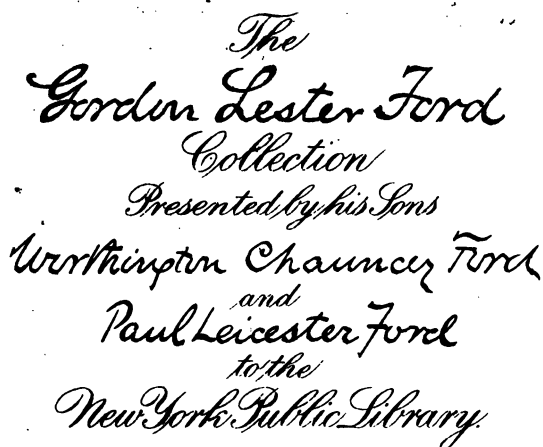 The
Gordon Lester Ford
Collection
Presented by his Sons
Worthington Chauncey Ford
and
Paul Leicester Ford
to the
New York Public Library.